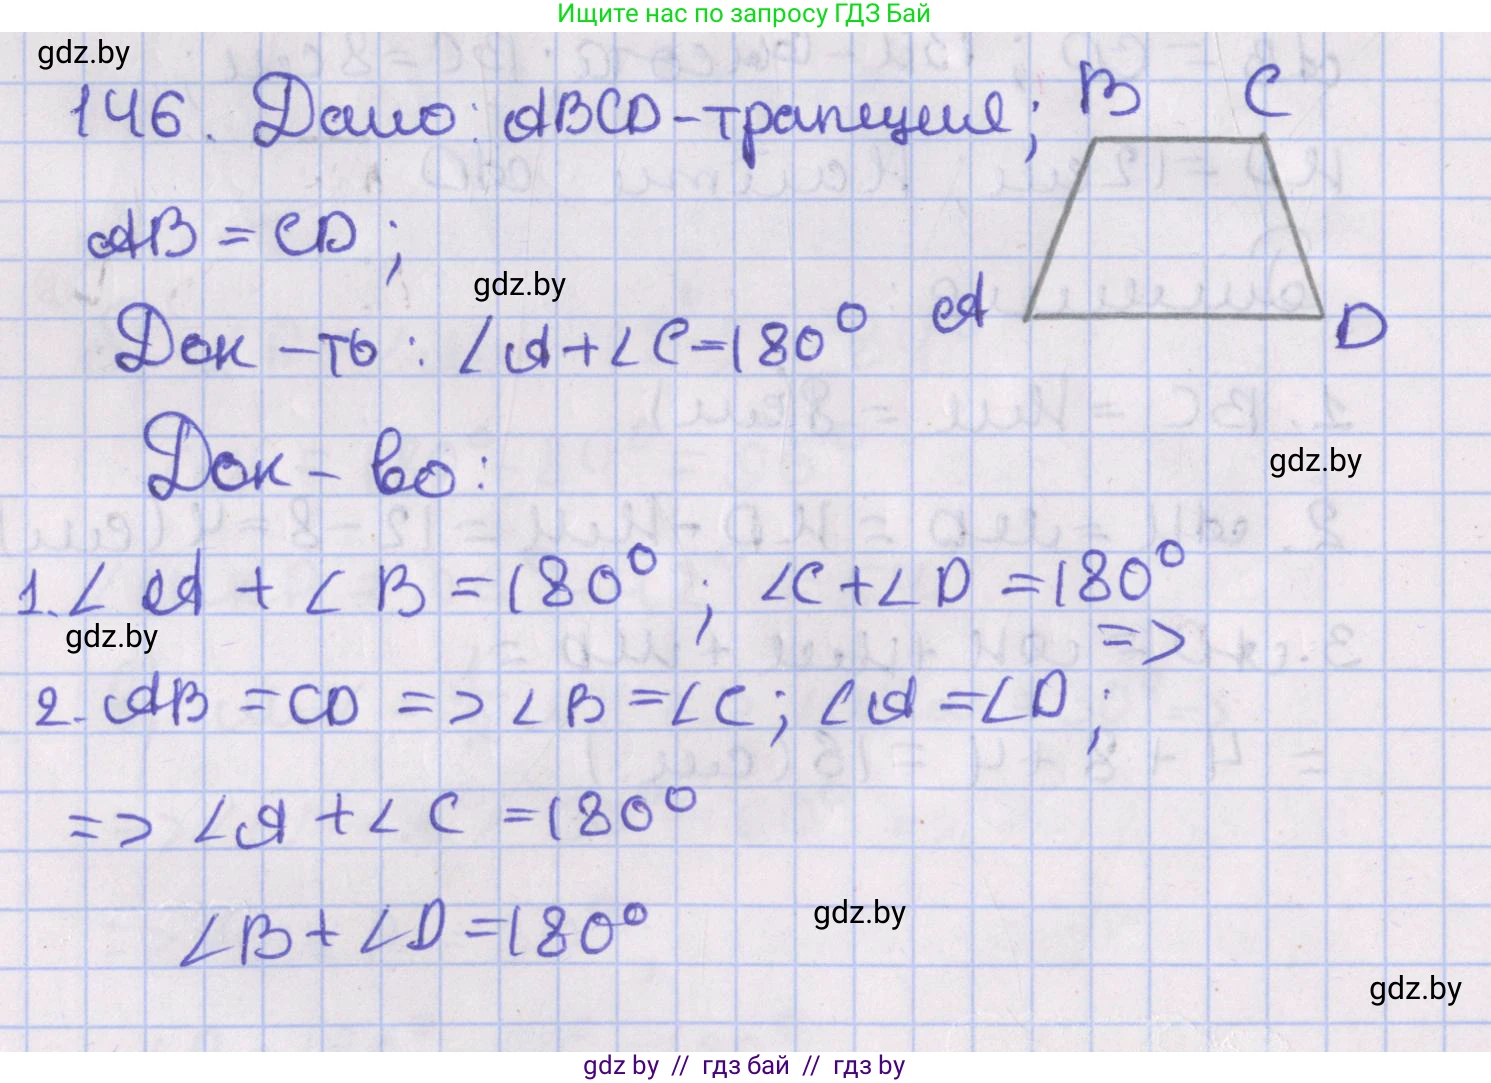 Ищите нас по запросу ГДЗ Бай
gdz.by
146. Дано: ABCD - трапеция;
B C
AB = CD;
gdz.by
A D
Док-ть: ∠A + ∠C = 180°
Док-во:
gdz.by
1. ∠A + ∠B = 180°; ∠C + ∠D = 180°
=>
gdz.by
2. AB = CD => ∠B = ∠C; ∠A = ∠D;
=> ∠A + ∠C = 180°
∠B + ∠D = 180°
gdz.by
gdz.by
gdz by // гдз бай // гдз by